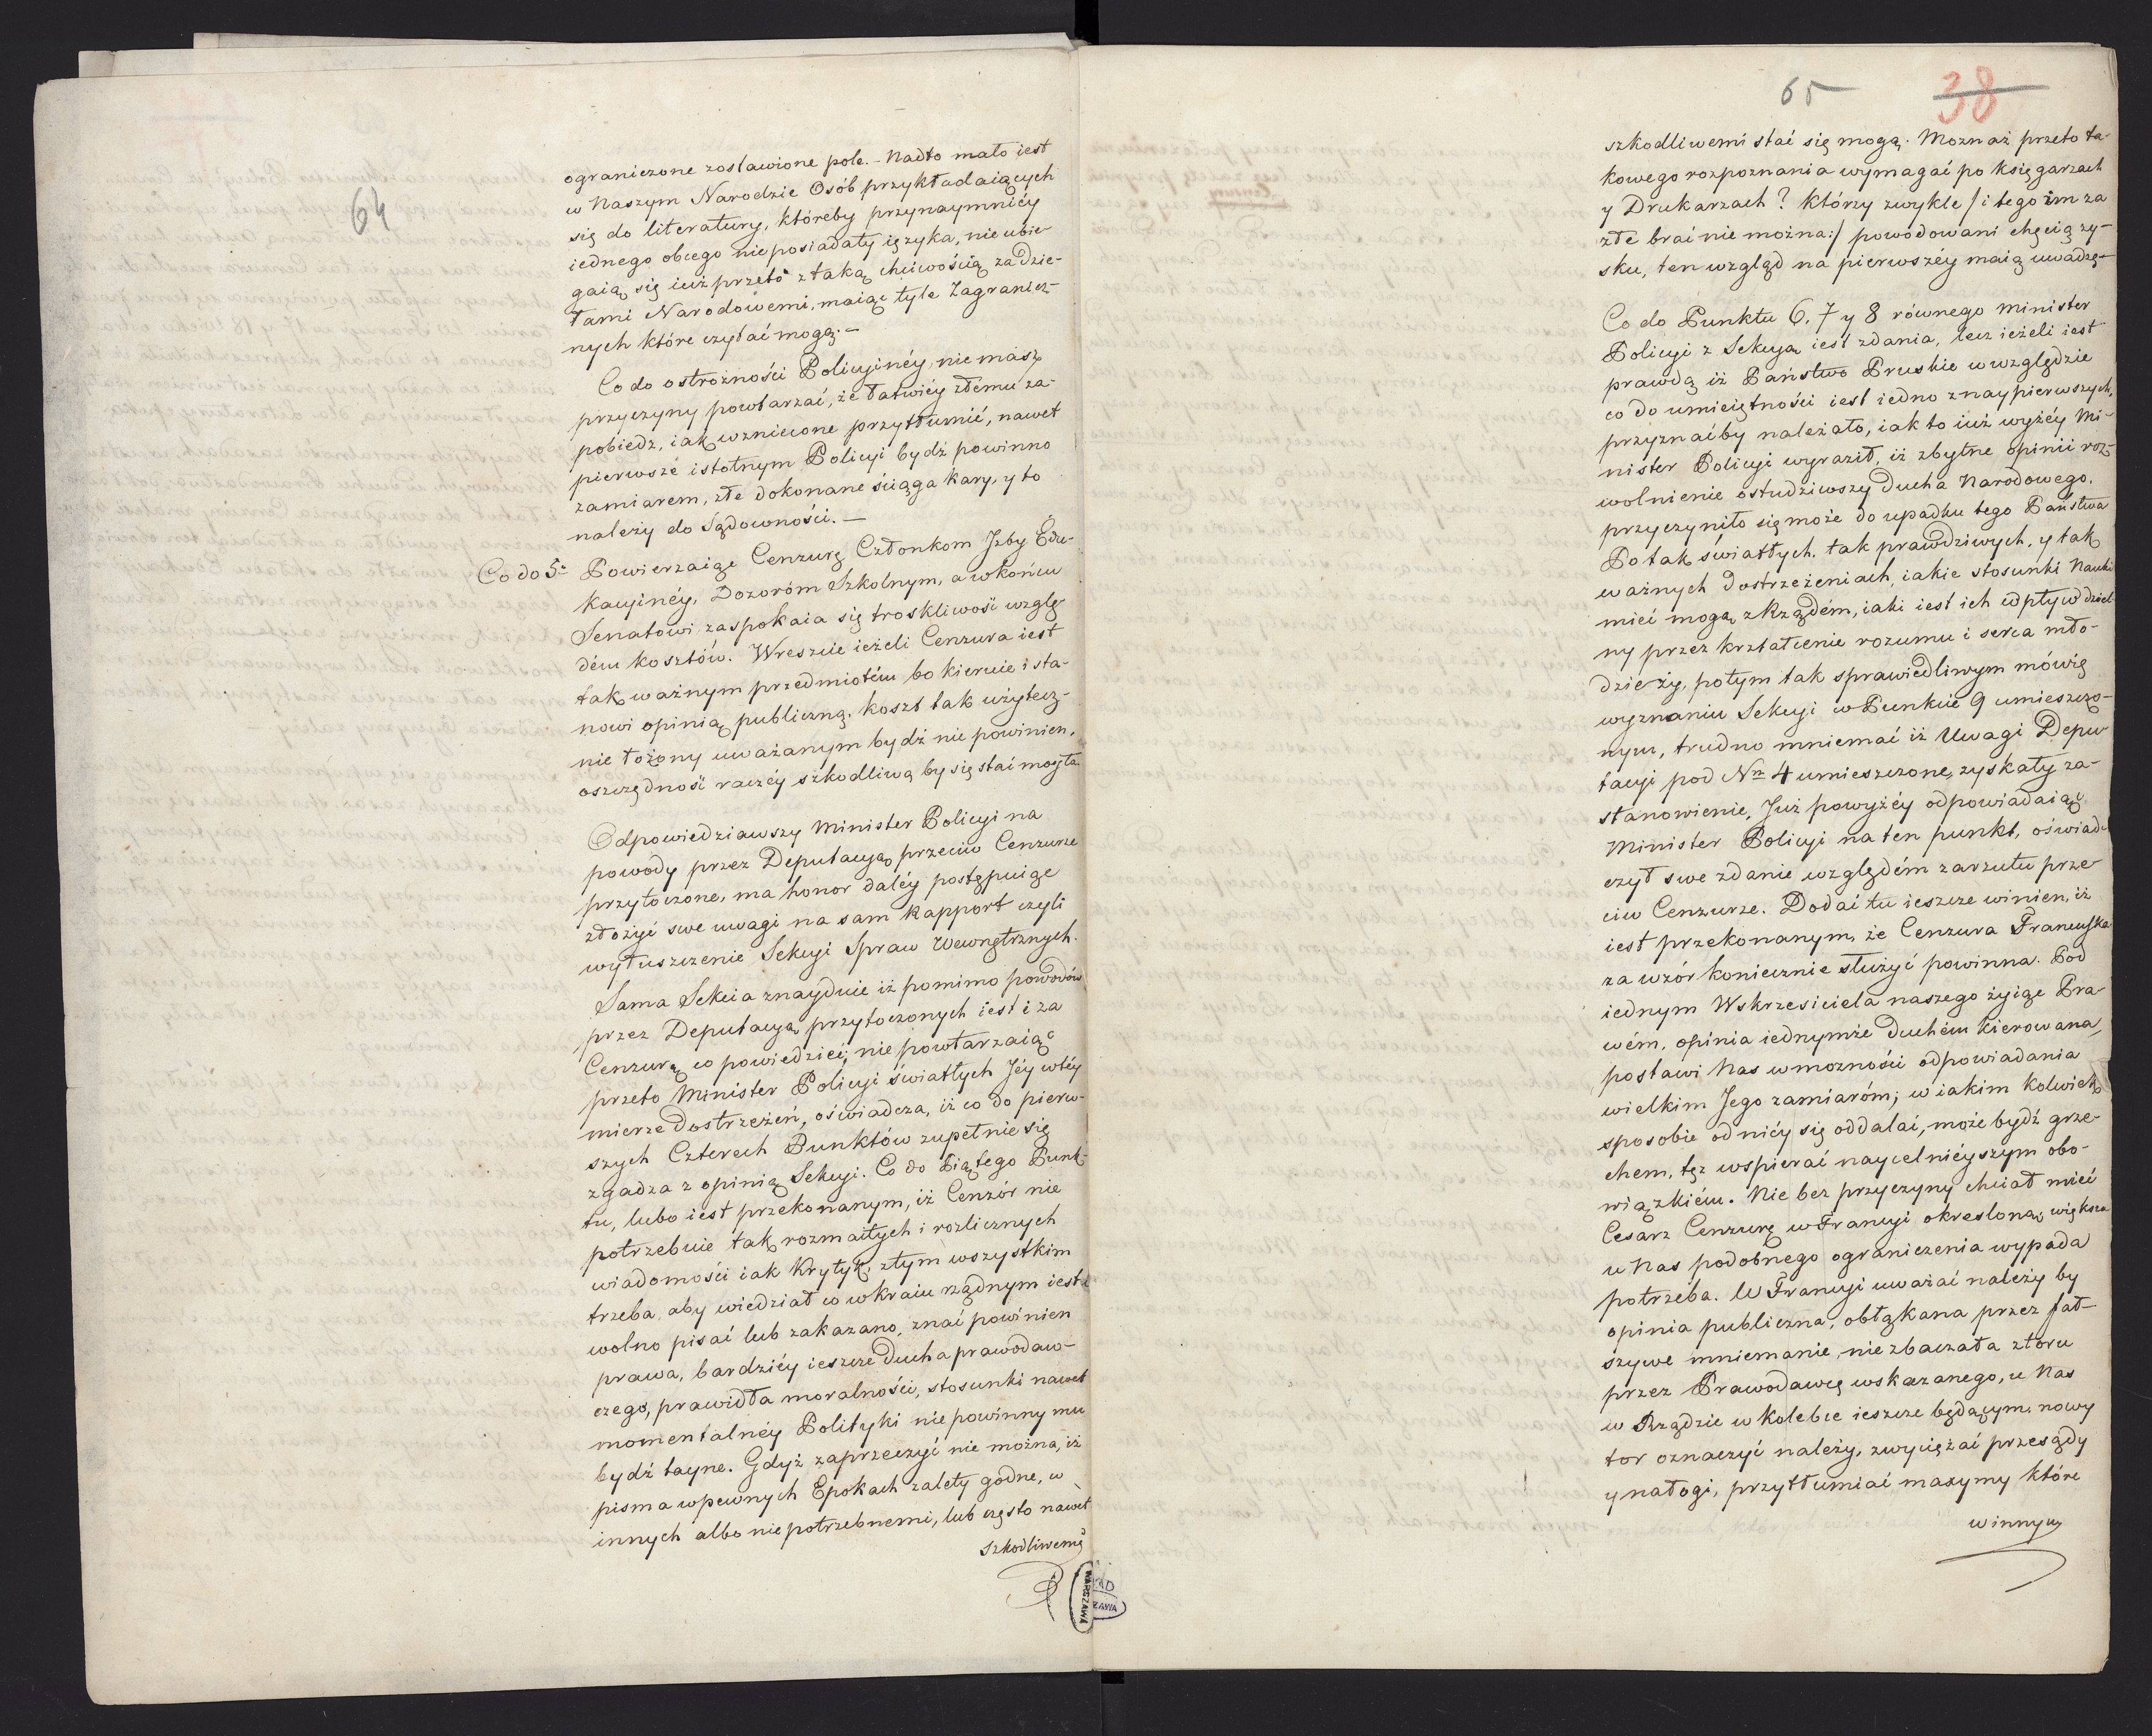 64
ograniczone zostawione pole. – Nadto mało iest
w Naszym Narodzie Osób przykładaiących
się do literatury, któreby przynaymniéy
iednego obcego nieposiadały ięzyka, nie ubie-
gaią się iuż przeto z taką chciwością za dzie-
łami Narodowemi, maiąc tyle Zagranicz-
nych które czytać mogą. –
Co do ostrożności Policyinéy, nie masz
przyczyny powtarzać, że łatwiéy złému za-
pobiedz, iak wzniecone przytłumić, nawet
pierwsze istotnym Policyi bydź powinno
zamiarem, złe dokonane ściąga kary, y to
należy do Sądowności. –
Co do 5º Powierzaiąc Cenzurę Członkom Jzby Edu-
kacyinéy, Dozoróm Szkolnym, a w końcu
Senatowi zaspokaia się troskliwość wzglę-
dém kosztów. Wreszcie ieżeli Cenzura iest
tak ważnym przedmiotém bo kieruie i sta-
nowi opinią publiczną, koszt tak użytecz-
nie łożony uważanym bydź nie powinien,
oszczędność raczéy szkodliwą by się stać mogła.
Odpowiedziawszy Minister Policyi na
powody przez Deputacyą przeciw Cenzurze
przytoczone, ma honor daléy postępuiąc
złożyć swe uwagi na sam Rapport czyli
wyłuszczenie Sekcyi Spraw Wewnętrznych.
Sama Sekcia znayduie iż pomimo powodów
przez Deputacyą przytoczonych iest i za
Cenzurą co powiedzieć; nie powtarzaiąc
przeto Minister Policyi światłych Jéy w téy
mierze dostrzeżeń, oświadcza, iż co do pierw-
szych Czterech Punktów zupełnie się
zgadza z opinią Sekcyi. Co do Piątego Punk-
tu, lubo iest przekonanym, iż Cenzór nie
potrzebuie tak rozmaitych i rozlicznych
wiadomości iak Krytyk, z tym wszystkim
trzeba, aby wiedział co w kraiu rządnym iest
wolno pisać lub zakazano, znać powinien
prawa, bardziéy ieszcze Ducha prawodaw-
czego, prawidła moralności, stosunki nawet
momentalnéy Polityki nie powinny mu
bydź tayne. Gdyż zaprzeczyć nie można, iż
pisma w pewnych Epokach zalety godne, w
innych albo niepotrzebnemi, lub często nawet
szkodliwemi
WARSZAWA
AD
ZAWA
65
38
szkodliwemi stać się mogą. Możnaż przeto ta-
kowego rozpoznania wymagać po księgarzach
y Drukarzach? którzy zwykle /: i tego im za
złe brać nie można :/ powodowani chęcią zy-
sku, ten wzgląd na pierwszéy maią uwadze –
Co do Punktu 6, 7 y 8 równego Minister
Policyi z Sekcyą iest zdania, lecz ieżeli iest
prawdą iż Państwo Pruskie w względzie
co do umieiętności iest iedno z naypierwszych,
przyznać by należało, iak to iuż wyżéy Mi-
nister Policyi wyraził, iż zbytne opinii roz-
wolnienie ostudziwszy Ducha Narodowego,
przyczyniło się może do upadku tego Państwa
Po tak światłych, tak prawdziwych, y tak
ważnych Dostrzeżeniach, iakie stosunki Nauki
mieć mogą z Rządém, iaki iest ich wpływ dziel-
ny przez krztałcenie rozumu i serca mło-
dzieży, po tym tak sprawiedliwym mówię
wyznaniu Sekcyi w Punkcie 9 umieszczo-
nym, trudno mniemać iż Uwagi Depu-
tacyi pod Nrz 4 umieszczone, zyskały za-
stanowienie, Już powyżéy odpowiadaiąc
Minister Policyi na ten punkt, oświad-
czył swe zdanie względém zarzutu prze-
ciw Cenzurze. Dodać tu ieszcze winien, iż
iest przekonanym, że Cenzura Francuska
za wzór koniecznie służyć powinna. Pod
iednym Wskrzesiciela naszego żyiąc Pra-
wém, opinia iednymże Duchém kierowana,
postawi Nas w możności odpowiadania
wielkim Jego zamiaróm; w iakim kolwiek
sposobie od niéy się oddalać, może bydź grze-
chem, tęż wspierać naycelniéyszym obo-
wiązkiém. Nie bez przyczyny chciał mieć
Cesarz Cenzurę w Francyi określoną, większa
u Nas podobnego ograniczenia wypada
potrzeba. W Francyi uważać należy by
opinia publiczna, obłąkana przez fał-
szywe mniemanie, nie zbaczała z toru
przez Prawodawcę wskazanego, u Nas
w Rządzie w kolebce ieszcze będącym, nowy
tor oznaczyć należy, zwyciężać przesądy
y nałogi, przytłumiać maxymy które
w innym